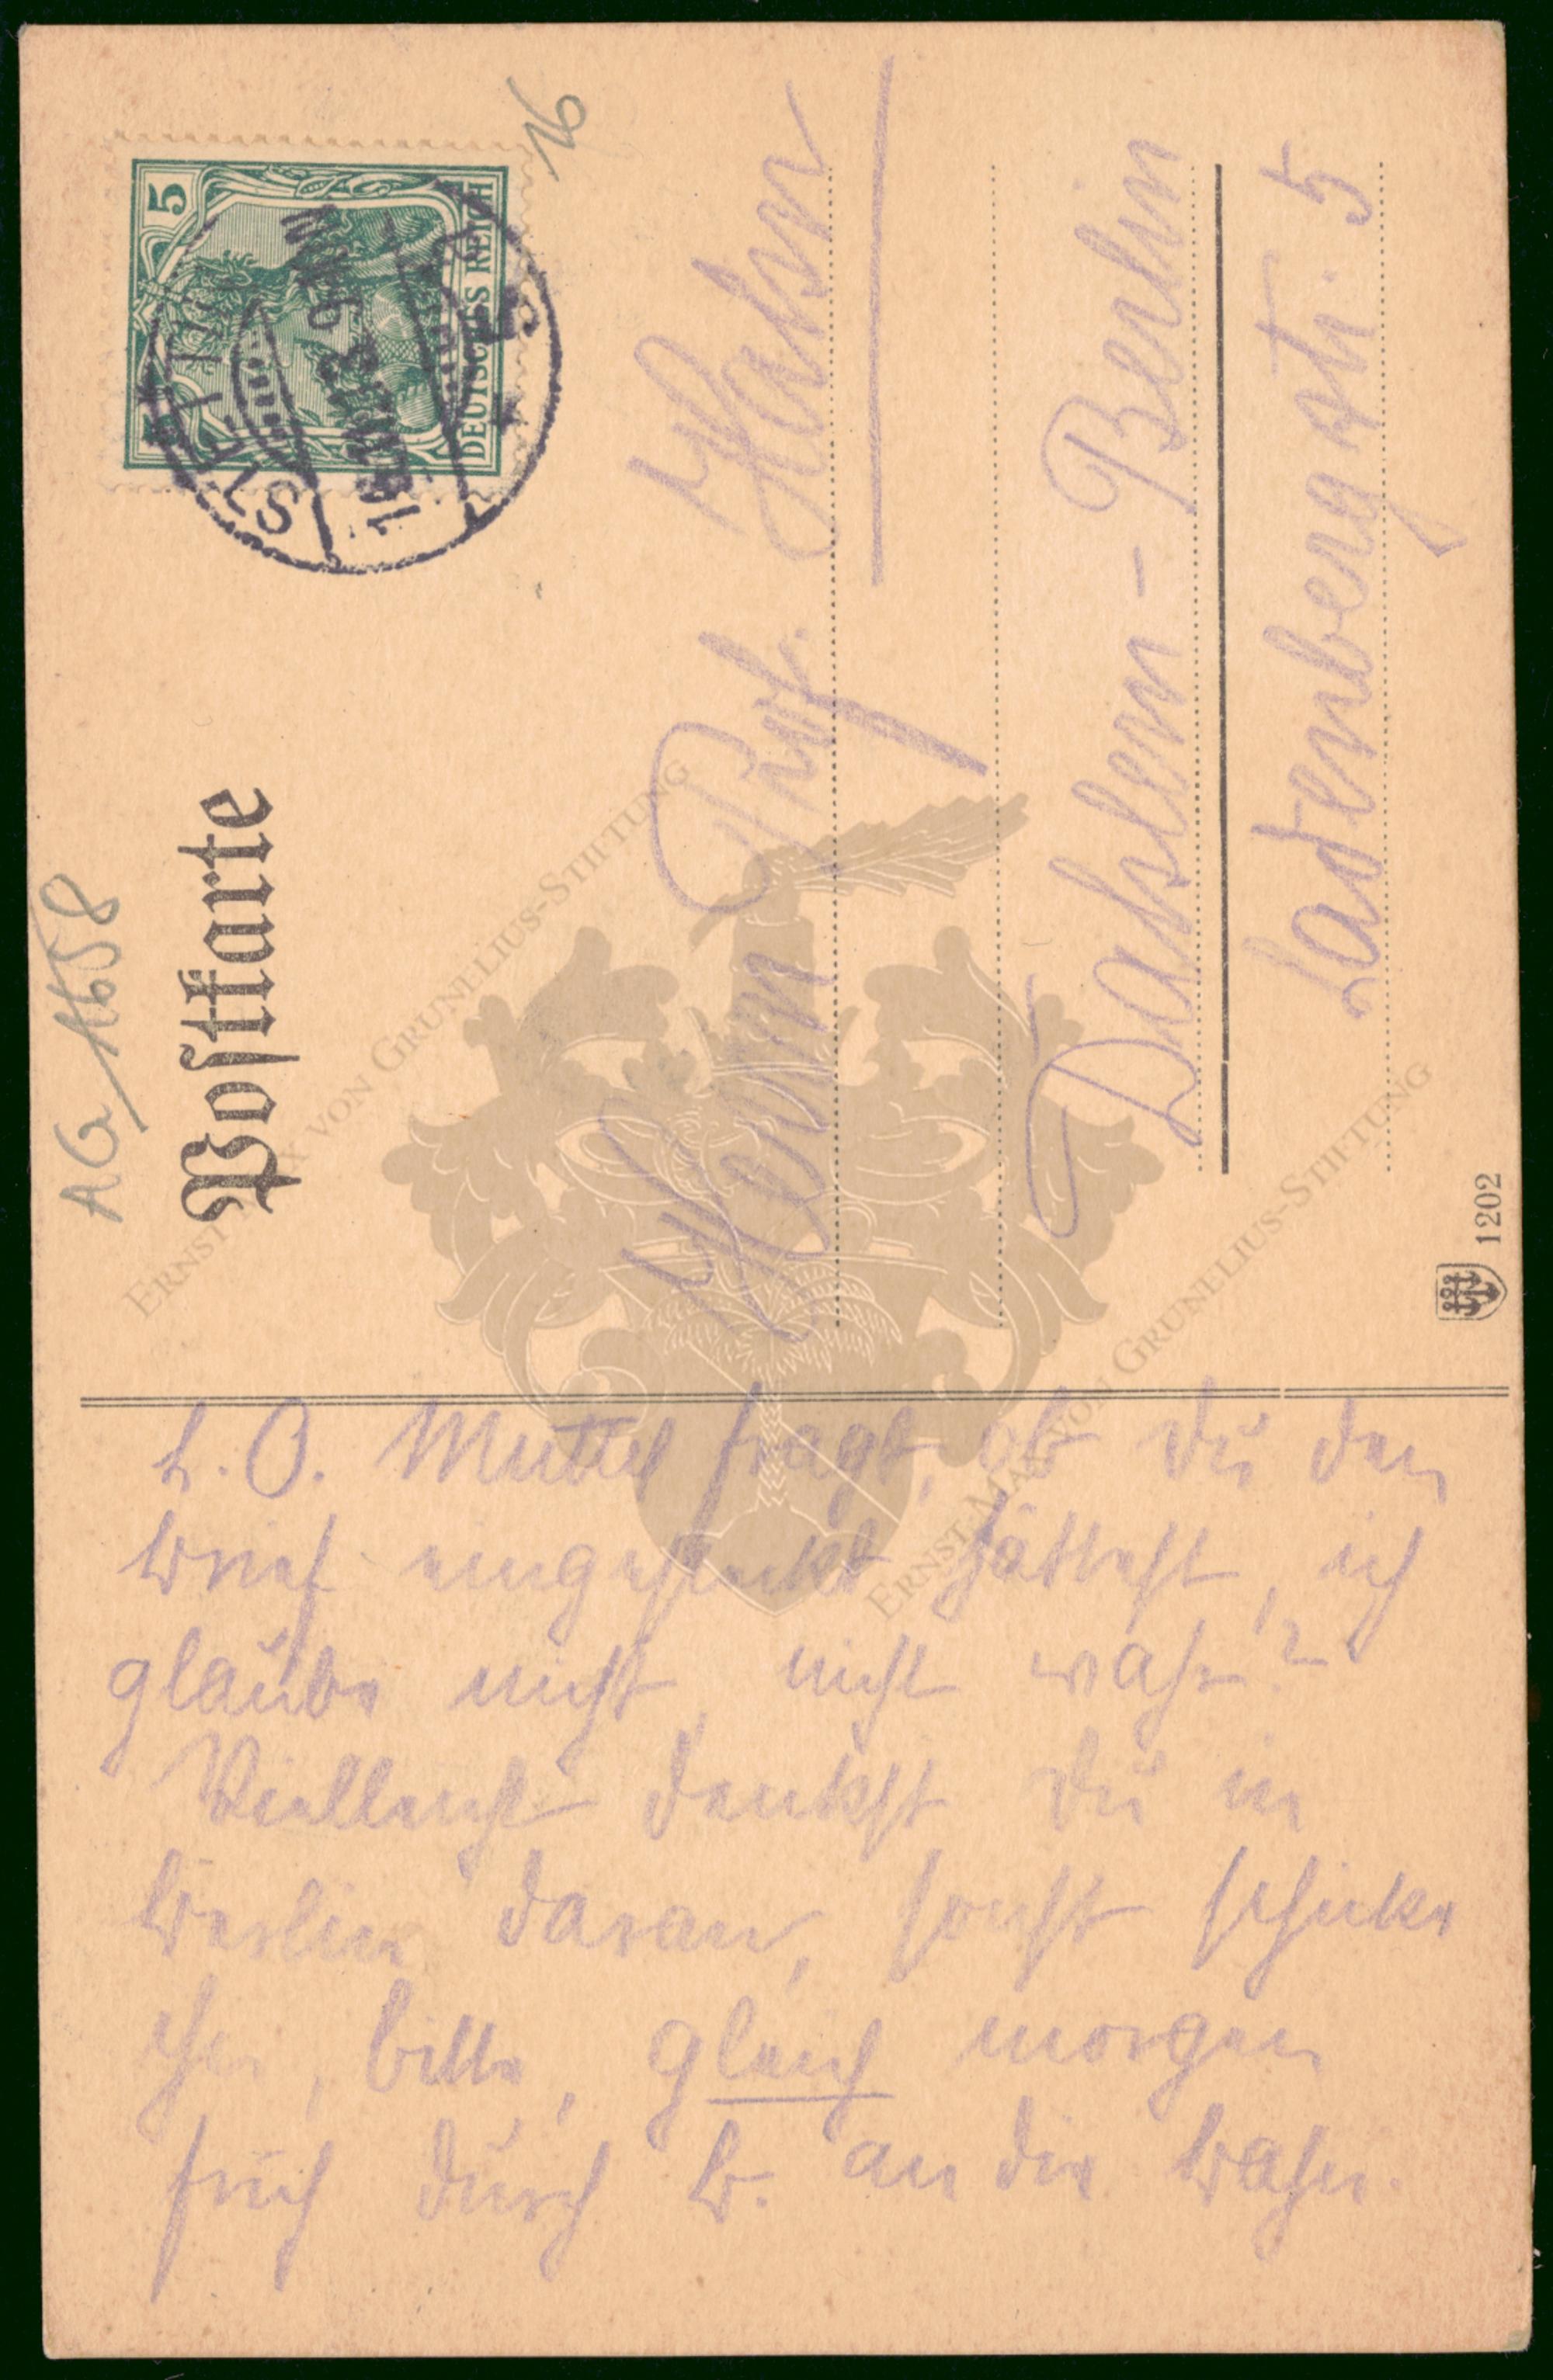 AG 1658
Postkarte
16
5 5
DEUTSCHES REICH
STETTIN
Herrn Prof. Hahn
Dahlem - Berlin
Ladenbergstr. 5
1202
L. O. Muttel fragt, ob Du den
Brief eingesteckt hättest, ich
glaube nicht, nicht wahr?
Vielleicht denkst Du in
Berlin daran, sonst schicke
ihn, bitte, gleich morgen
früh durch B. an die Bahn.
ERNST MAX VON GRUNELIUS-STIFTUNG
ERNST MAX VON GRUNELIUS-STIFTUNG